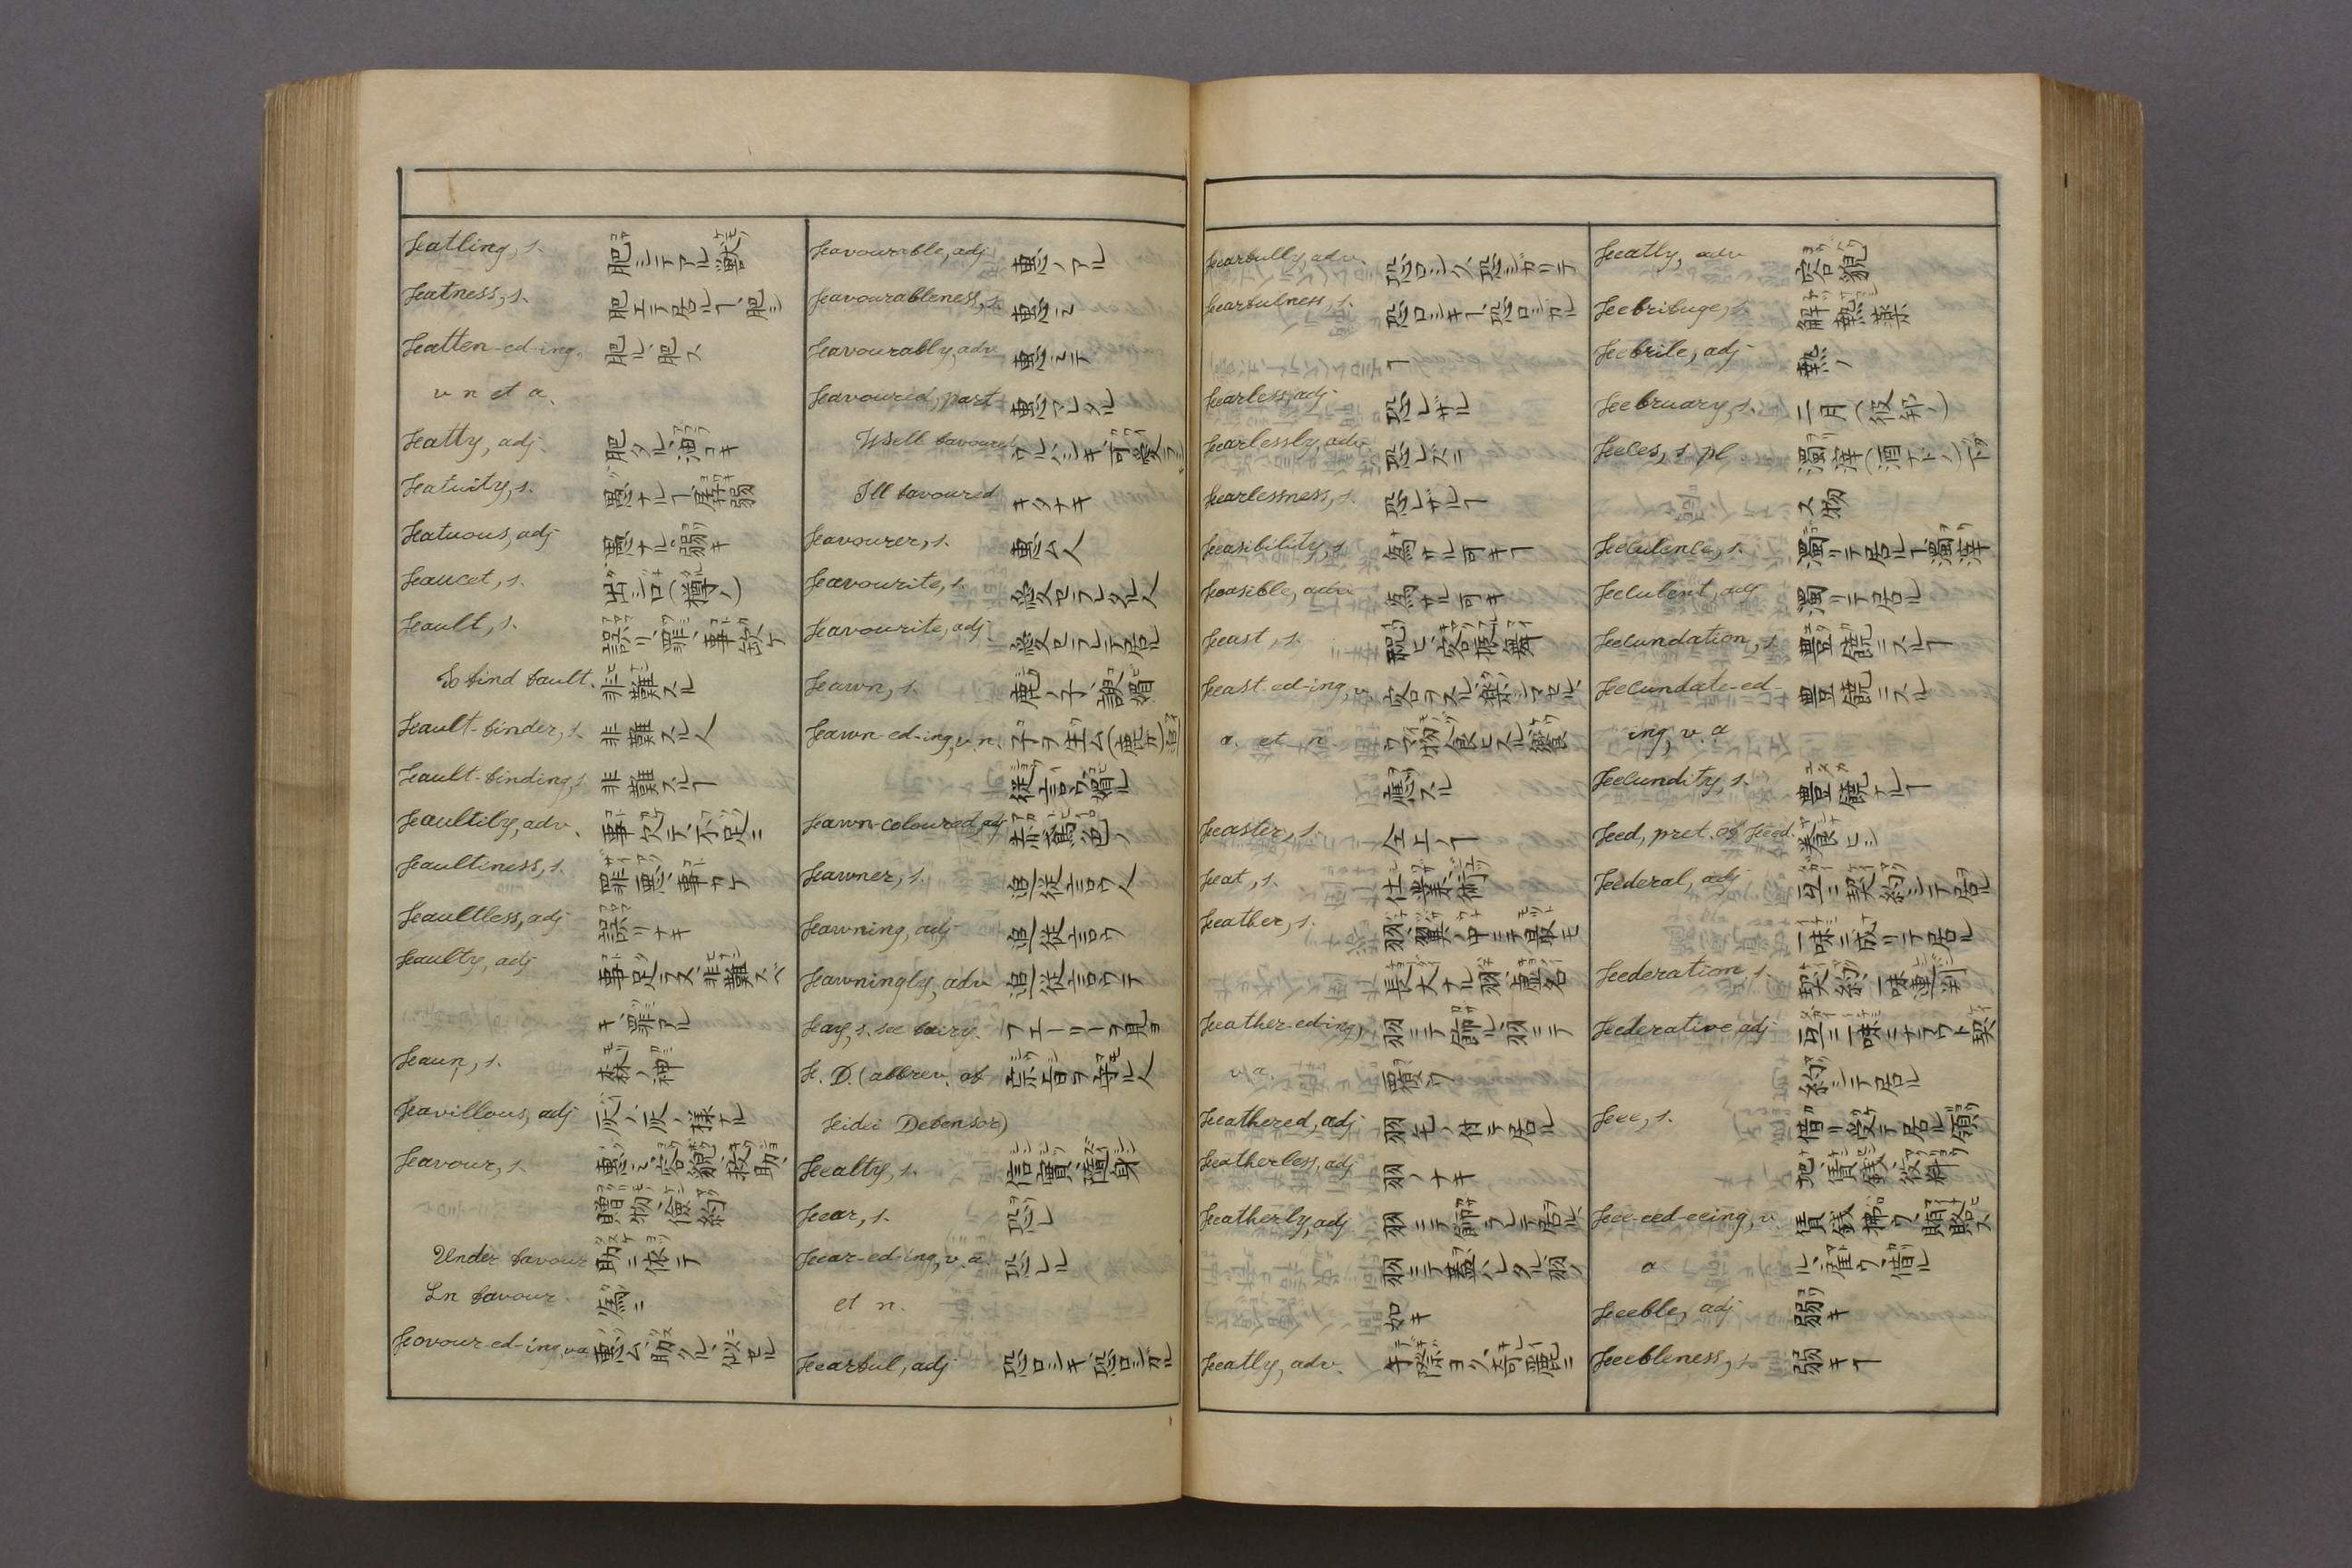 Fatling, s. 肥シテアル獣
Fatness, s. 肥エテ居ルヿ、肥シ
Fatten-ed-ing, 肥ル、肥ス
v n et a.
Fatty, adj. 肥タル、油コキ
Fatuity, s. 愚ナルヿ、孱弱
Fatuous, adj 愚ナル、弱キ
Faucet, s. 出シロ(樽ノ)
Fault, s. 誤リ、罪、事欽ケ
To find fault. 非難スル
Fault-finder, s. 非難スル人
Fault-finding, s 非難スルヿ
Faultily, adv. 事欠テ、不足ニ
Faultiness, s. 罪悪、事カケ
Faultless, adj 誤リナキ
Faulty, adj 事足ラヌ、非難スベ
キ、罪アル
Faun, s. 森ノ神
Favillous, adj 灰ノ、灰ノ様ナル
Favour, s. 恵ミ、容貌、救助、
贈物、倹約
Under favour 助ニ依テ
In favour. 為ニ
Favour-ed-ing, v a 恵ム、助クル、似セル
Favourable, adj 恵ノアル
Favourableness, s. 恵ミ
Favourably, adv 恵ミテ
Favoured, part 恵マレタル
Well favoured ウルハシキ、可愛ラシキ
Ill favoured キタナキ
Favourer, s. 恵ム人
Favourite, s. 愍セラレタル人
Favourite, adj 愍セラレテ居ル
Fawn, s. 鹿ノ子、諛媚
Fawn-ed-ing, v. n. 子ヲ生ム(鹿ガ)追
従言ウ、媚ル
Fawn-coloured, adj 赤鳶色ノ
Fawner, s. 追従言ウ人
Fawning, adj 追従言ウ
Fawningly, adv 追従言ウテ
Fay, s. see fairy. フエーリーヲ見ヨ
F. D. (abbrev. of 宗旨ヲ守ル人
Fidei Defensor)
Fealty, s. 信實、隨身
Fear, s. 恐レ
Fear-ed-ing, v. a. 恐レル
et n.
Fearful, adj 恐ロシキ、恐ロシガル
Fearfully, adv. 恐ロシク、恐シガリテ
Fearfulness, s. 恐ロシキヿ、恐ロシガル
ヿ
Fearless, adj 恐レザル
Fearlessly, adv 恐レズニ
Fearlessness, s. 恐レザルヿ
Feasibility, s 為サル可キヿ
Feasible, adv 為サル可キ
Feast, s. 祀ヒ、客振舞
Feast-ed-ing, v. 客ヲスル、楽シマセル、
a. et n. ウマ物食ヒスル、饗
應スル
Feaster, s. 仝上ノヿ
Feat, s. 仕業、術
Feather, s. 羽、翼ノ中ニテ最モ
長大ナル羽、虚名
Feather-ed-ing, 羽ニテ飾ル、羽ニテ
v. a. 覆ウ
Feathered, adj 羽毛ノ付テ居ル
Featherless, adj 羽ノナキ
Featherly, adj 羽ニテ飾ラレテ居ル、
羽ニテ蓋ハレタル、羽ノ
如キ
Featly, adv. 手際ヨク、奇麗ニ
Featly, adv 容貌
Febrifuge, s. 解熱薬
Febrile, adj 熱ノ
February, s. 二月(彼邦ノ)
Feces, s pl 濁滓(酒ナドノ)下
ス物
Feculence, s. 濁リテ居ルヿ、濁滓
Feculent, adj 濁リテ居ル
Fecundation, s. 豊饒ニスルヿ
Fecundate-ed- 豊饒ニスル
ing, v. a
Fecundity, s. 豊饒ナルヿ
Feed, pret. of feed. 養ヒシ
Federal, adj 互ニ契約シテ居ル
一味ニ成リテ居ル
Federation, s. 契約、一味連判
Federative, adj 互ニ一味ニナラウト契
約シテ居ル
Fee, s. 借リ受テ居ル領
地、賃銭、役料
Fee-eed-eeing, v. 賃銭拂ウ、賄賂ス
a ル、雇ウ、借ル
Feeble, adj 弱キ
Feebleness, s 弱キヿ